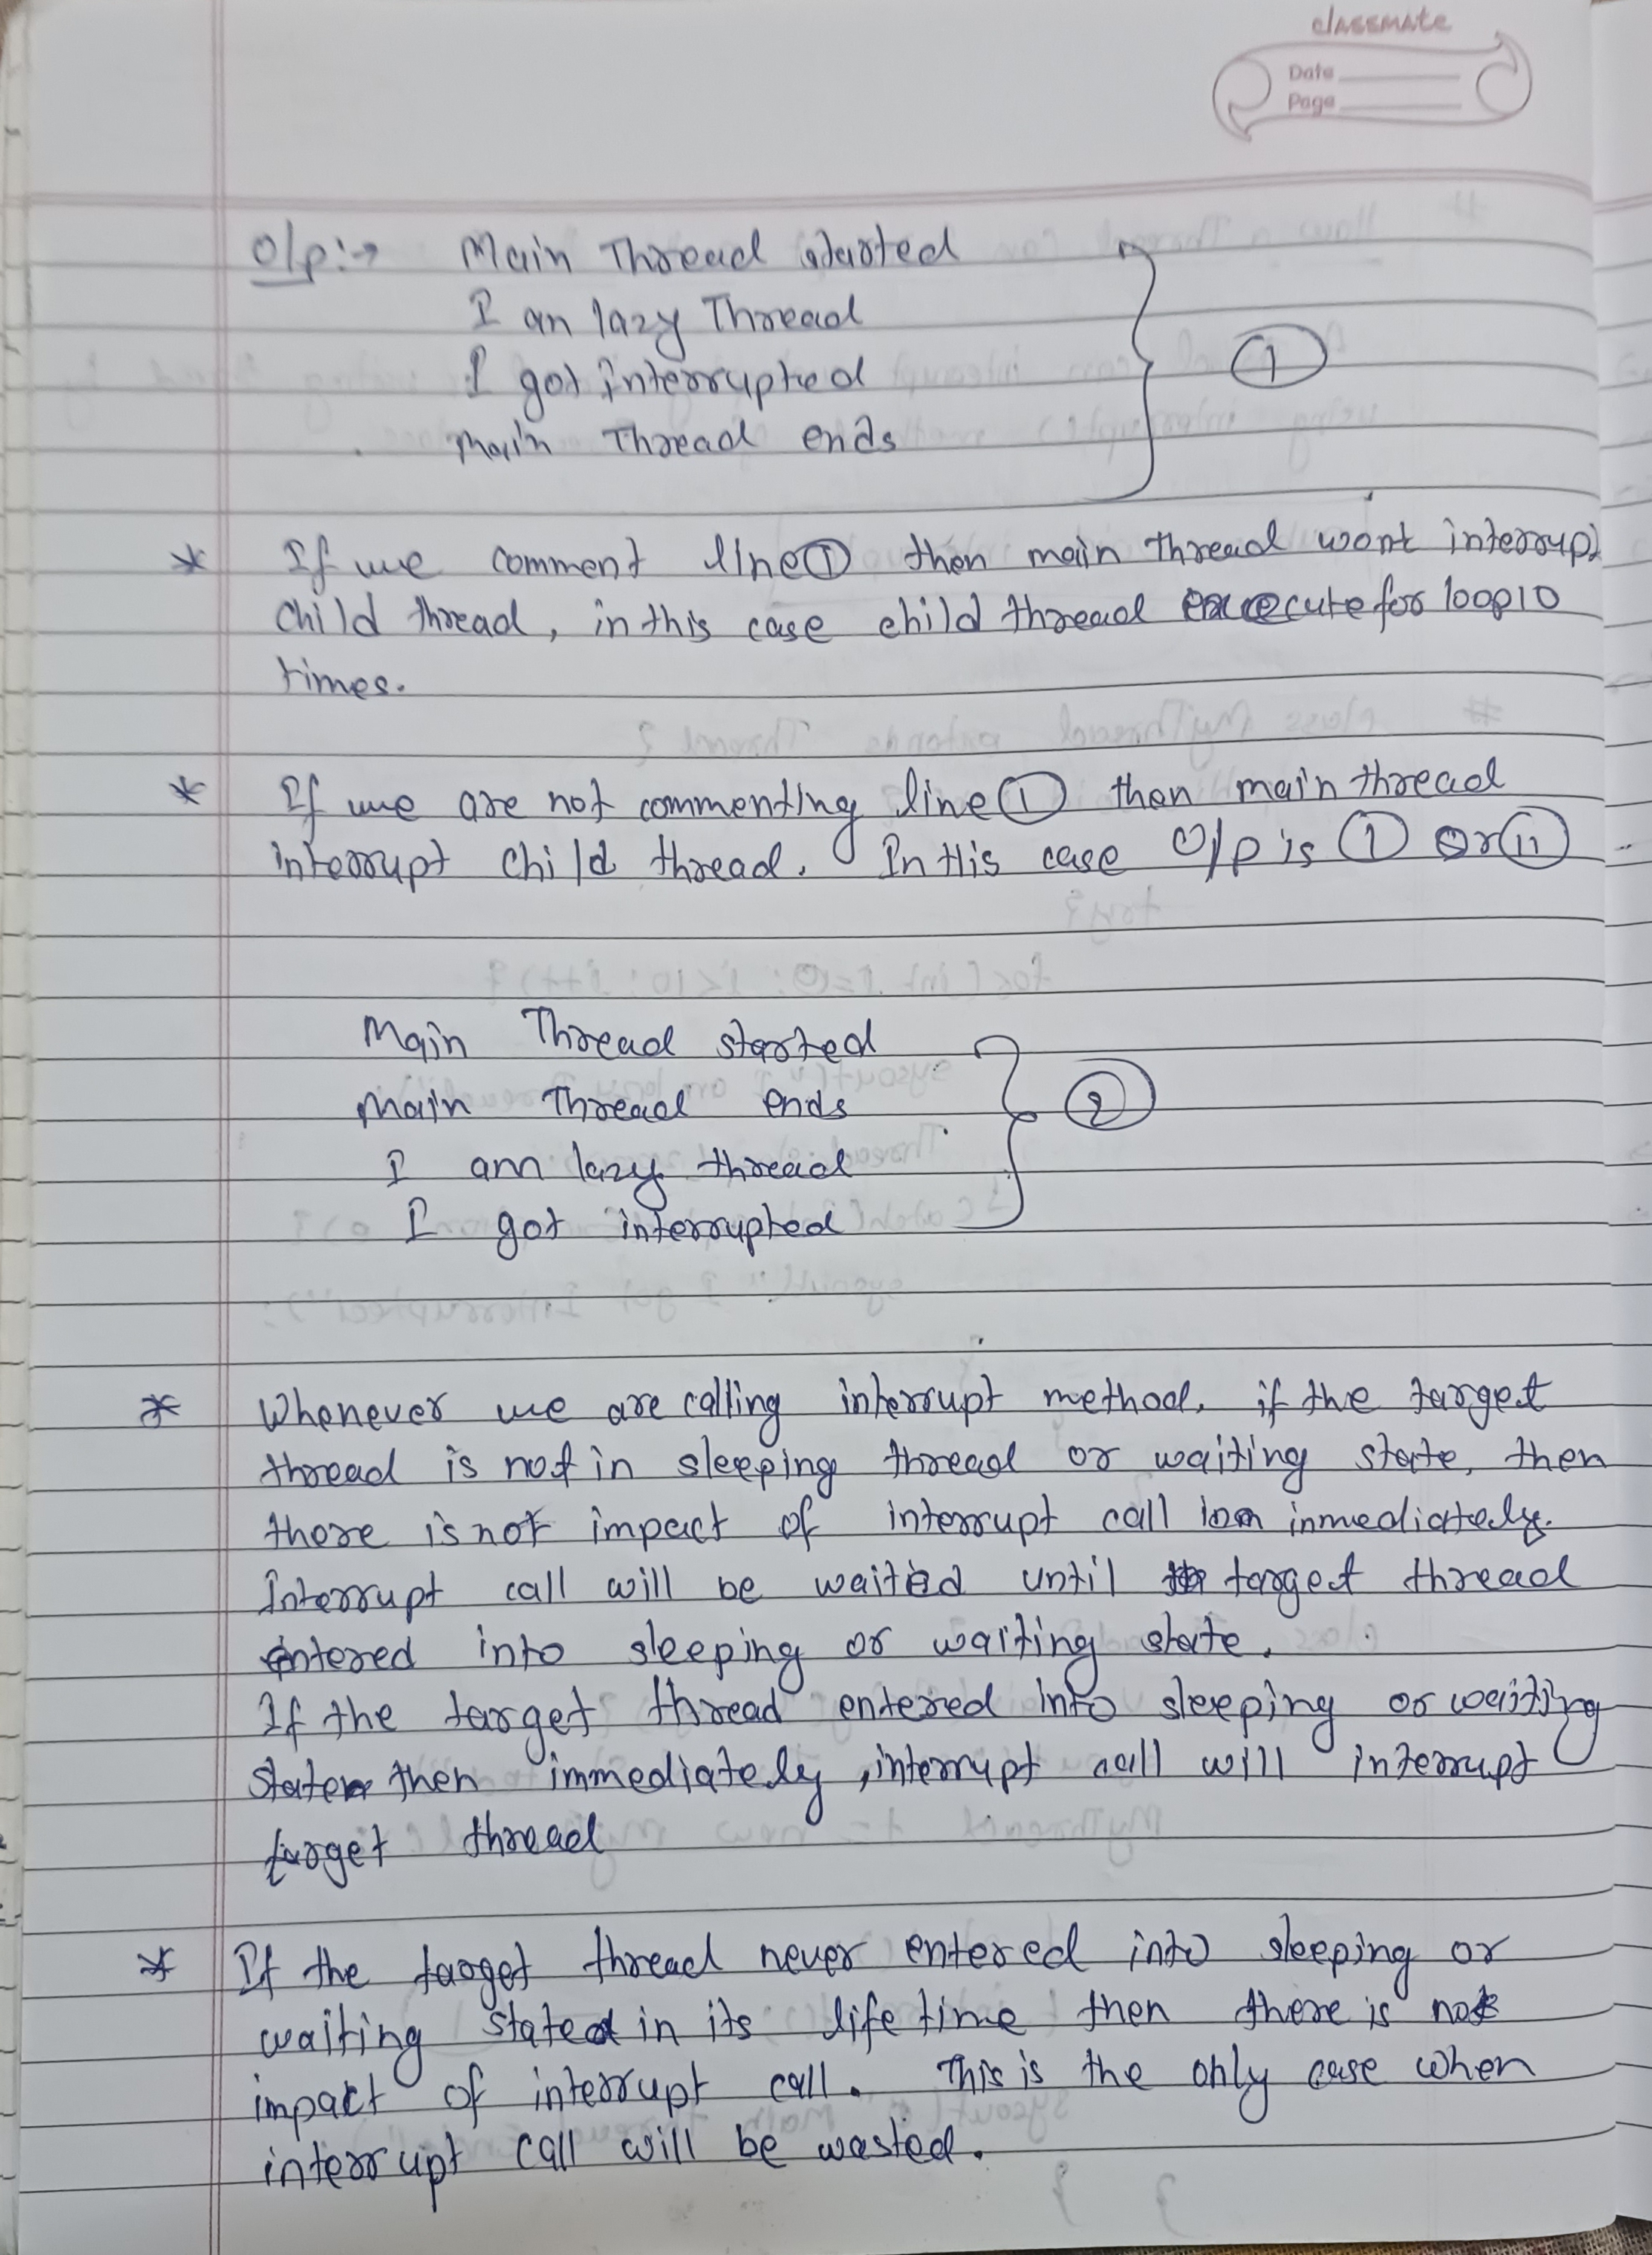 classmate
Date
Page
O/p:→ Main Thread started
I am lazy Thread
I got interrupted
Main Thread ends
①
* If we comment line① then main thread wont interrupt
child thread, in this case child thread execute for loop10
times.
* If we are not commenting line① then main thread
interrupt child thread. In this case O/p is ① or ⑪
Main Thread started
Main Thread ends
I am lazy thread
I got interrupted
②
* Whenever we are calling interrupt method, if the target
thread is not in sleeping thread or waiting state, then
there is not impact of interrupt call inmediately.
Interrupt call will be waited until target thread
entered into sleeping or waiting state.
If the target thread entered into sleeping or waiting
state then immediately, interrupt call will interrupt
target thread
* If the target thread never entered into sleeping or
waiting state in its life time then there is not
impact of interrupt call. This is the only case when
interrupt call will be wasted.